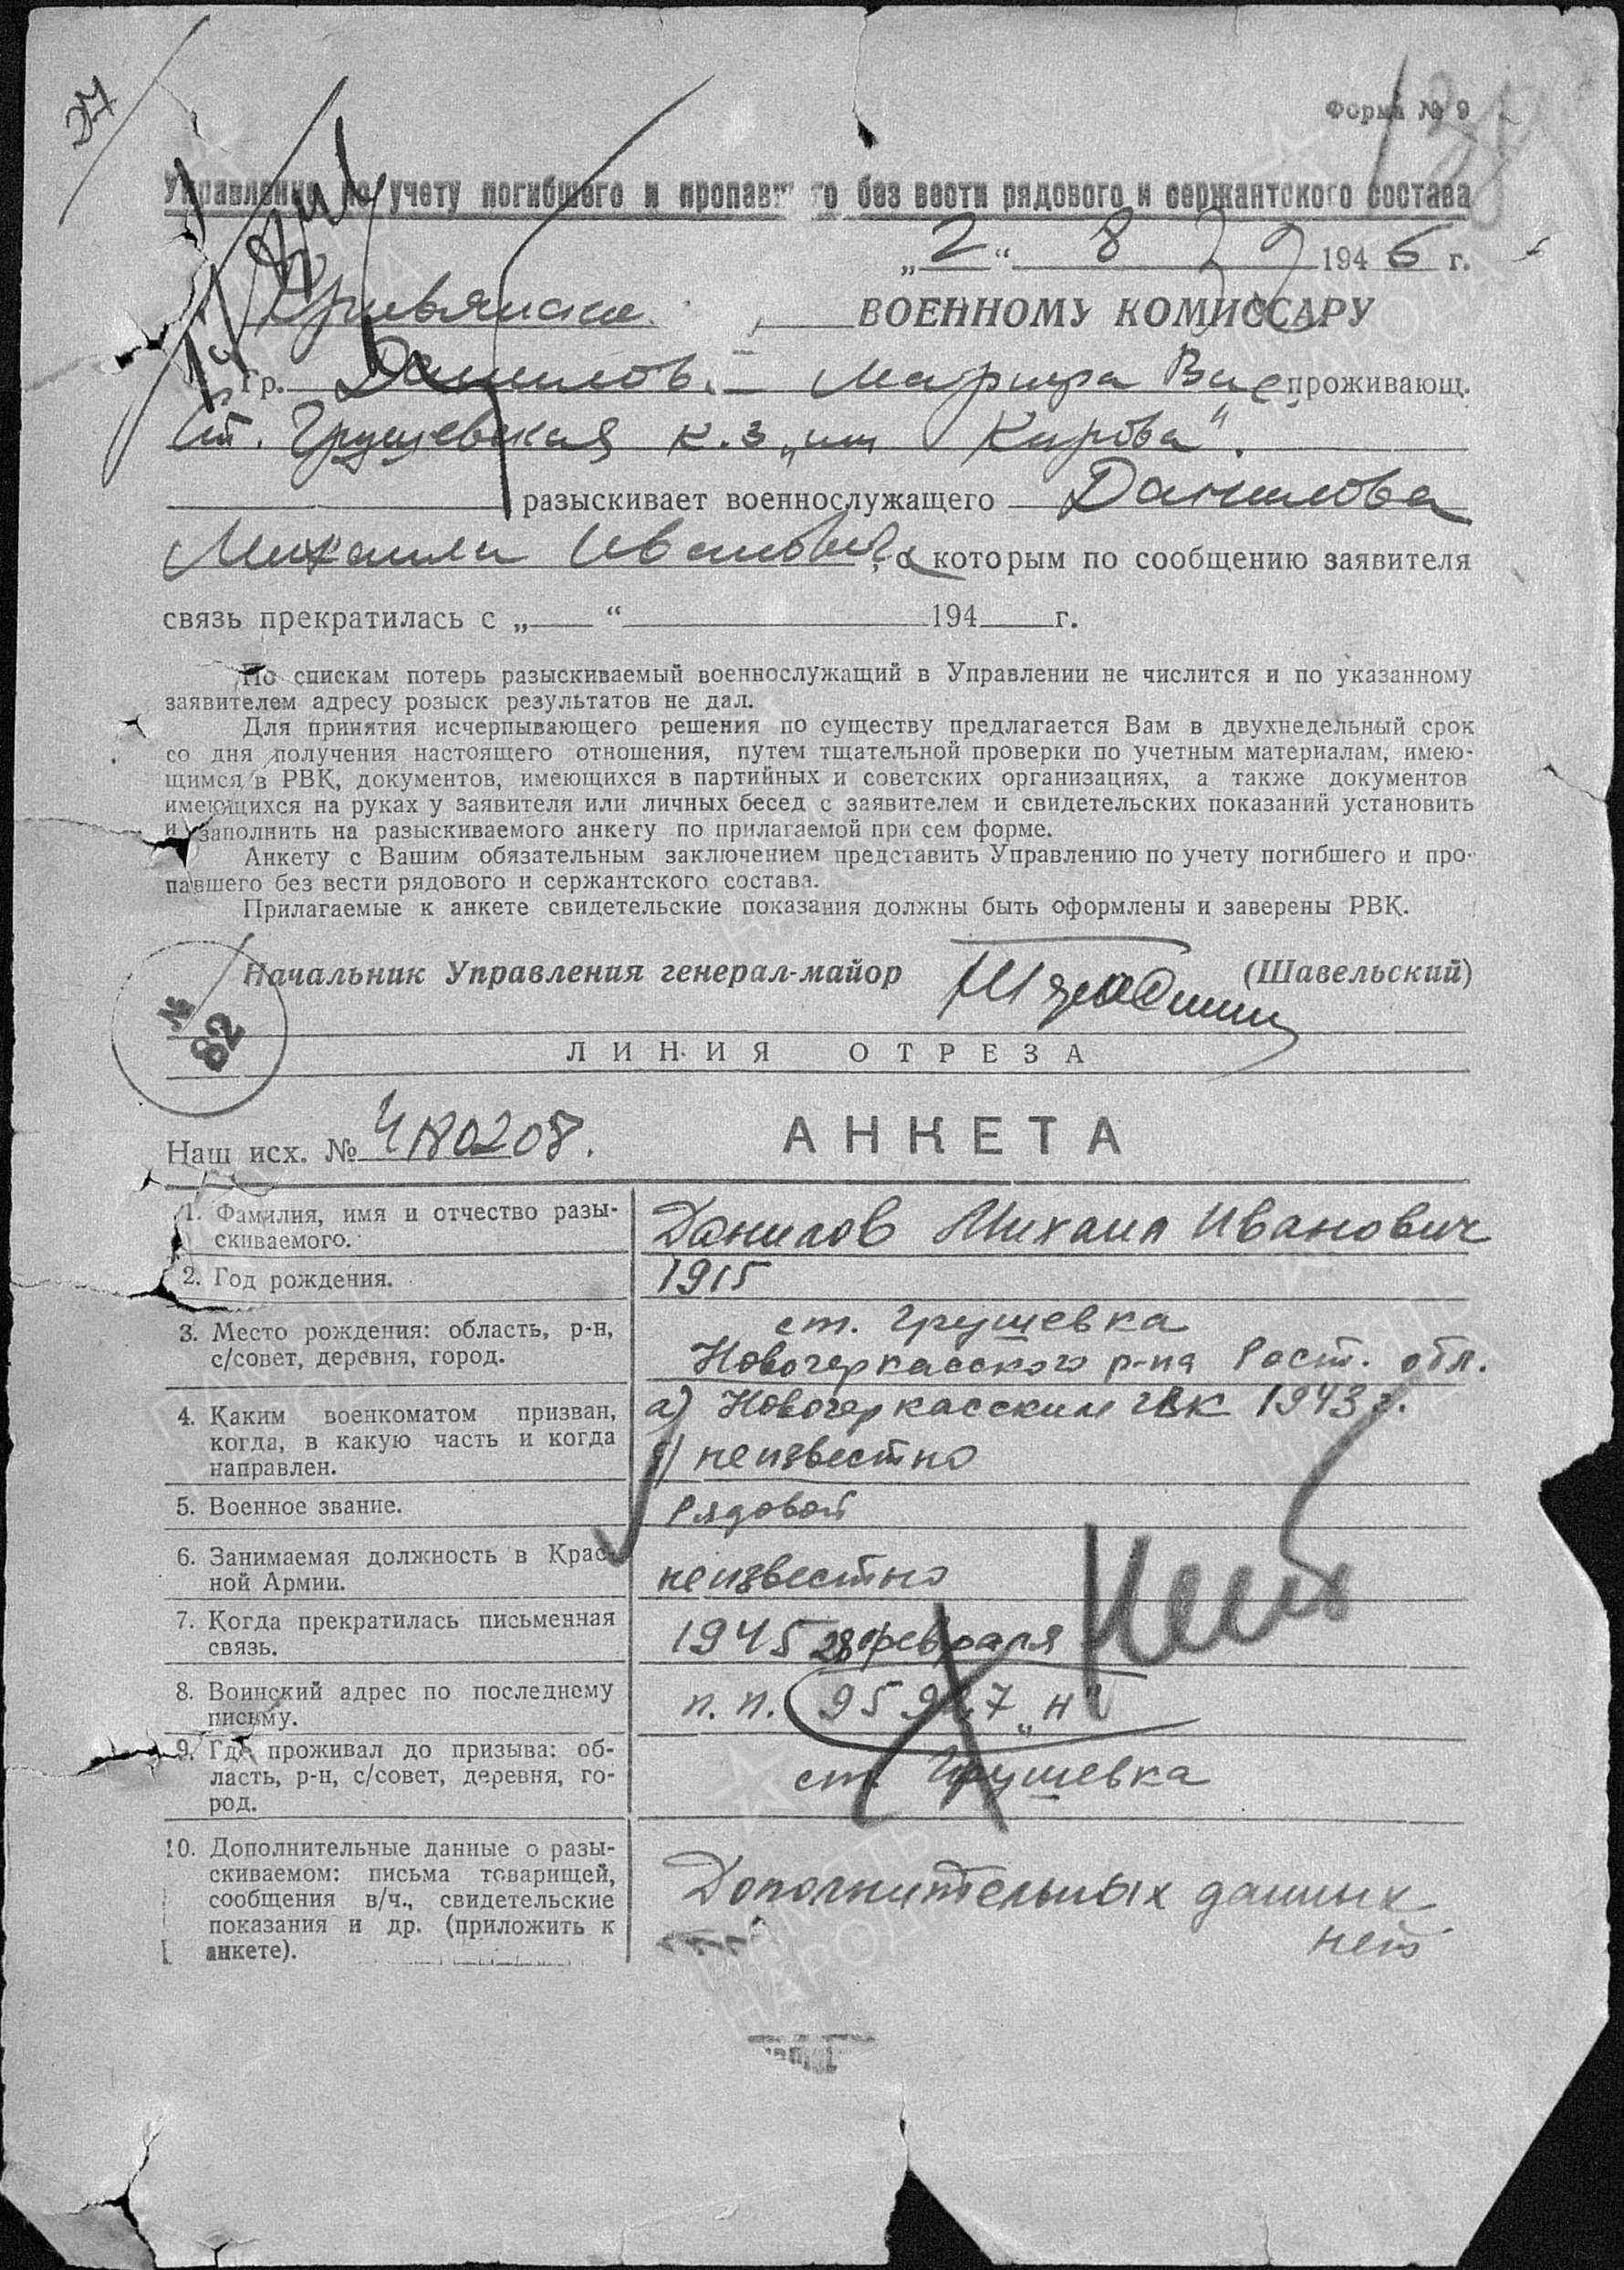 27
Форма № 9
Управление по учету погибшего и пропавшего без вести рядового и сержантского состава
„2“ 8 1946 г.
Кривянском ВОЕННОМУ КОМИССАРУ
Гр. Данилов. Матрира Вас проживающ.
Ст. Грушевская к.з „им Кирова".
разыскивает военнослужащего Данилова
Михаила Ивановича, с которым по сообщению заявителя
связь прекратилась с „ “ 194 г.
По спискам потерь разыскиваемый военнослужащий в Управлении не числится и по указанному
заявителем адресу розыск результатов не дал.
Для принятия исчерпывающего решения по существу предлагается Вам в двухнедельный срок
со дня получения настоящего отношения, путем тщательной проверки по учетным материалам, имею-
щимся в РВК, документов, имеющихся в партийных и советских организациях, а также документов
имеющихся на руках у заявителя или личных бесед с заявителем и свидетельских показаний установить
и заполнить на разыскиваемого анкету по прилагаемой при сем форме.
Анкету с Вашим обязательным заключением представить Управлению по учету погибшего и про-
павшего без вести рядового и сержантского состава.
Прилагаемые к анкете свидетельские показания должны быть оформлены и заверены РВК.
Начальник Управления генерал-майор (Шавельский)
№ 82
ЛИНИЯ ОТРЕЗА
Наш исх. № 4180208. АНКЕТА
1. Фамилия, имя и отчество разы-
скиваемого.
Данилов Михаил Иванович
2. Год рождения.
1915
3. Место рождения: область, р-н,
с/совет, деревня, город.
ст. Грушевка
Новочеркасского р-на Рост. обл.
4. Каким военкоматом призван,
когда, в какую часть и когда
направлен.
а) Новочеркасским ГВК 1943 г.
б) неизвестно
5. Военное звание.
Рядовой
6. Занимаемая должность в Крас-
ной Армии.
неизвестно
7. Когда прекратилась письменная
связь.
1945 28 февраля
Нет
8. Воинский адрес по последнему
письму.
п.п. 95927 „н"
9. Где проживал до призыва: об-
ласть, р-н, с/совет, деревня, го-
род.
ст. Грушевка
10. Дополнительные данные о разы-
скиваемом: письма товарищей,
сообщения в/ч., свидетельские
показания и др. (приложить к
анкете).
Дополнительных данных
нет